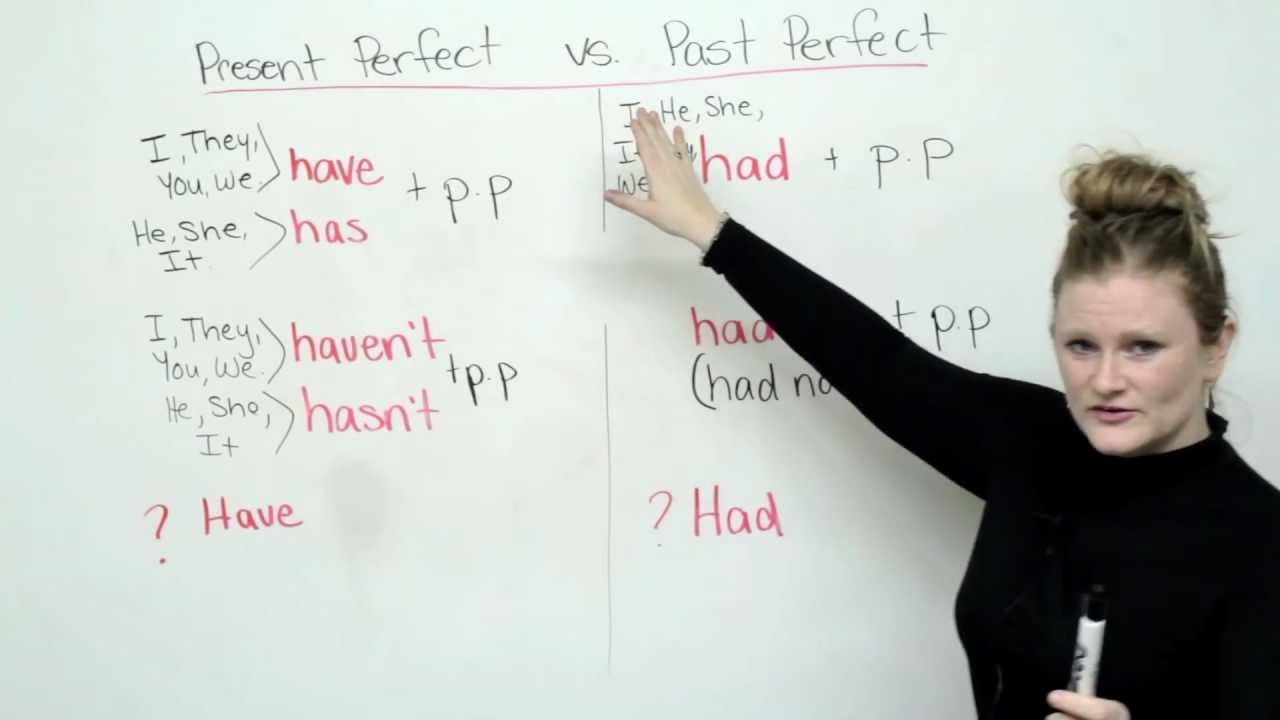 Present Perfect vs. Past Perfect
I, They,
You, we.
have
He, She,
It.
has
+ p.p
I, They,
You, we.
haven't
He, Sho,
It
hasn't
+p.p
? Have
I, He, She,
We
had + p.p
+ p.p
(had
? Had